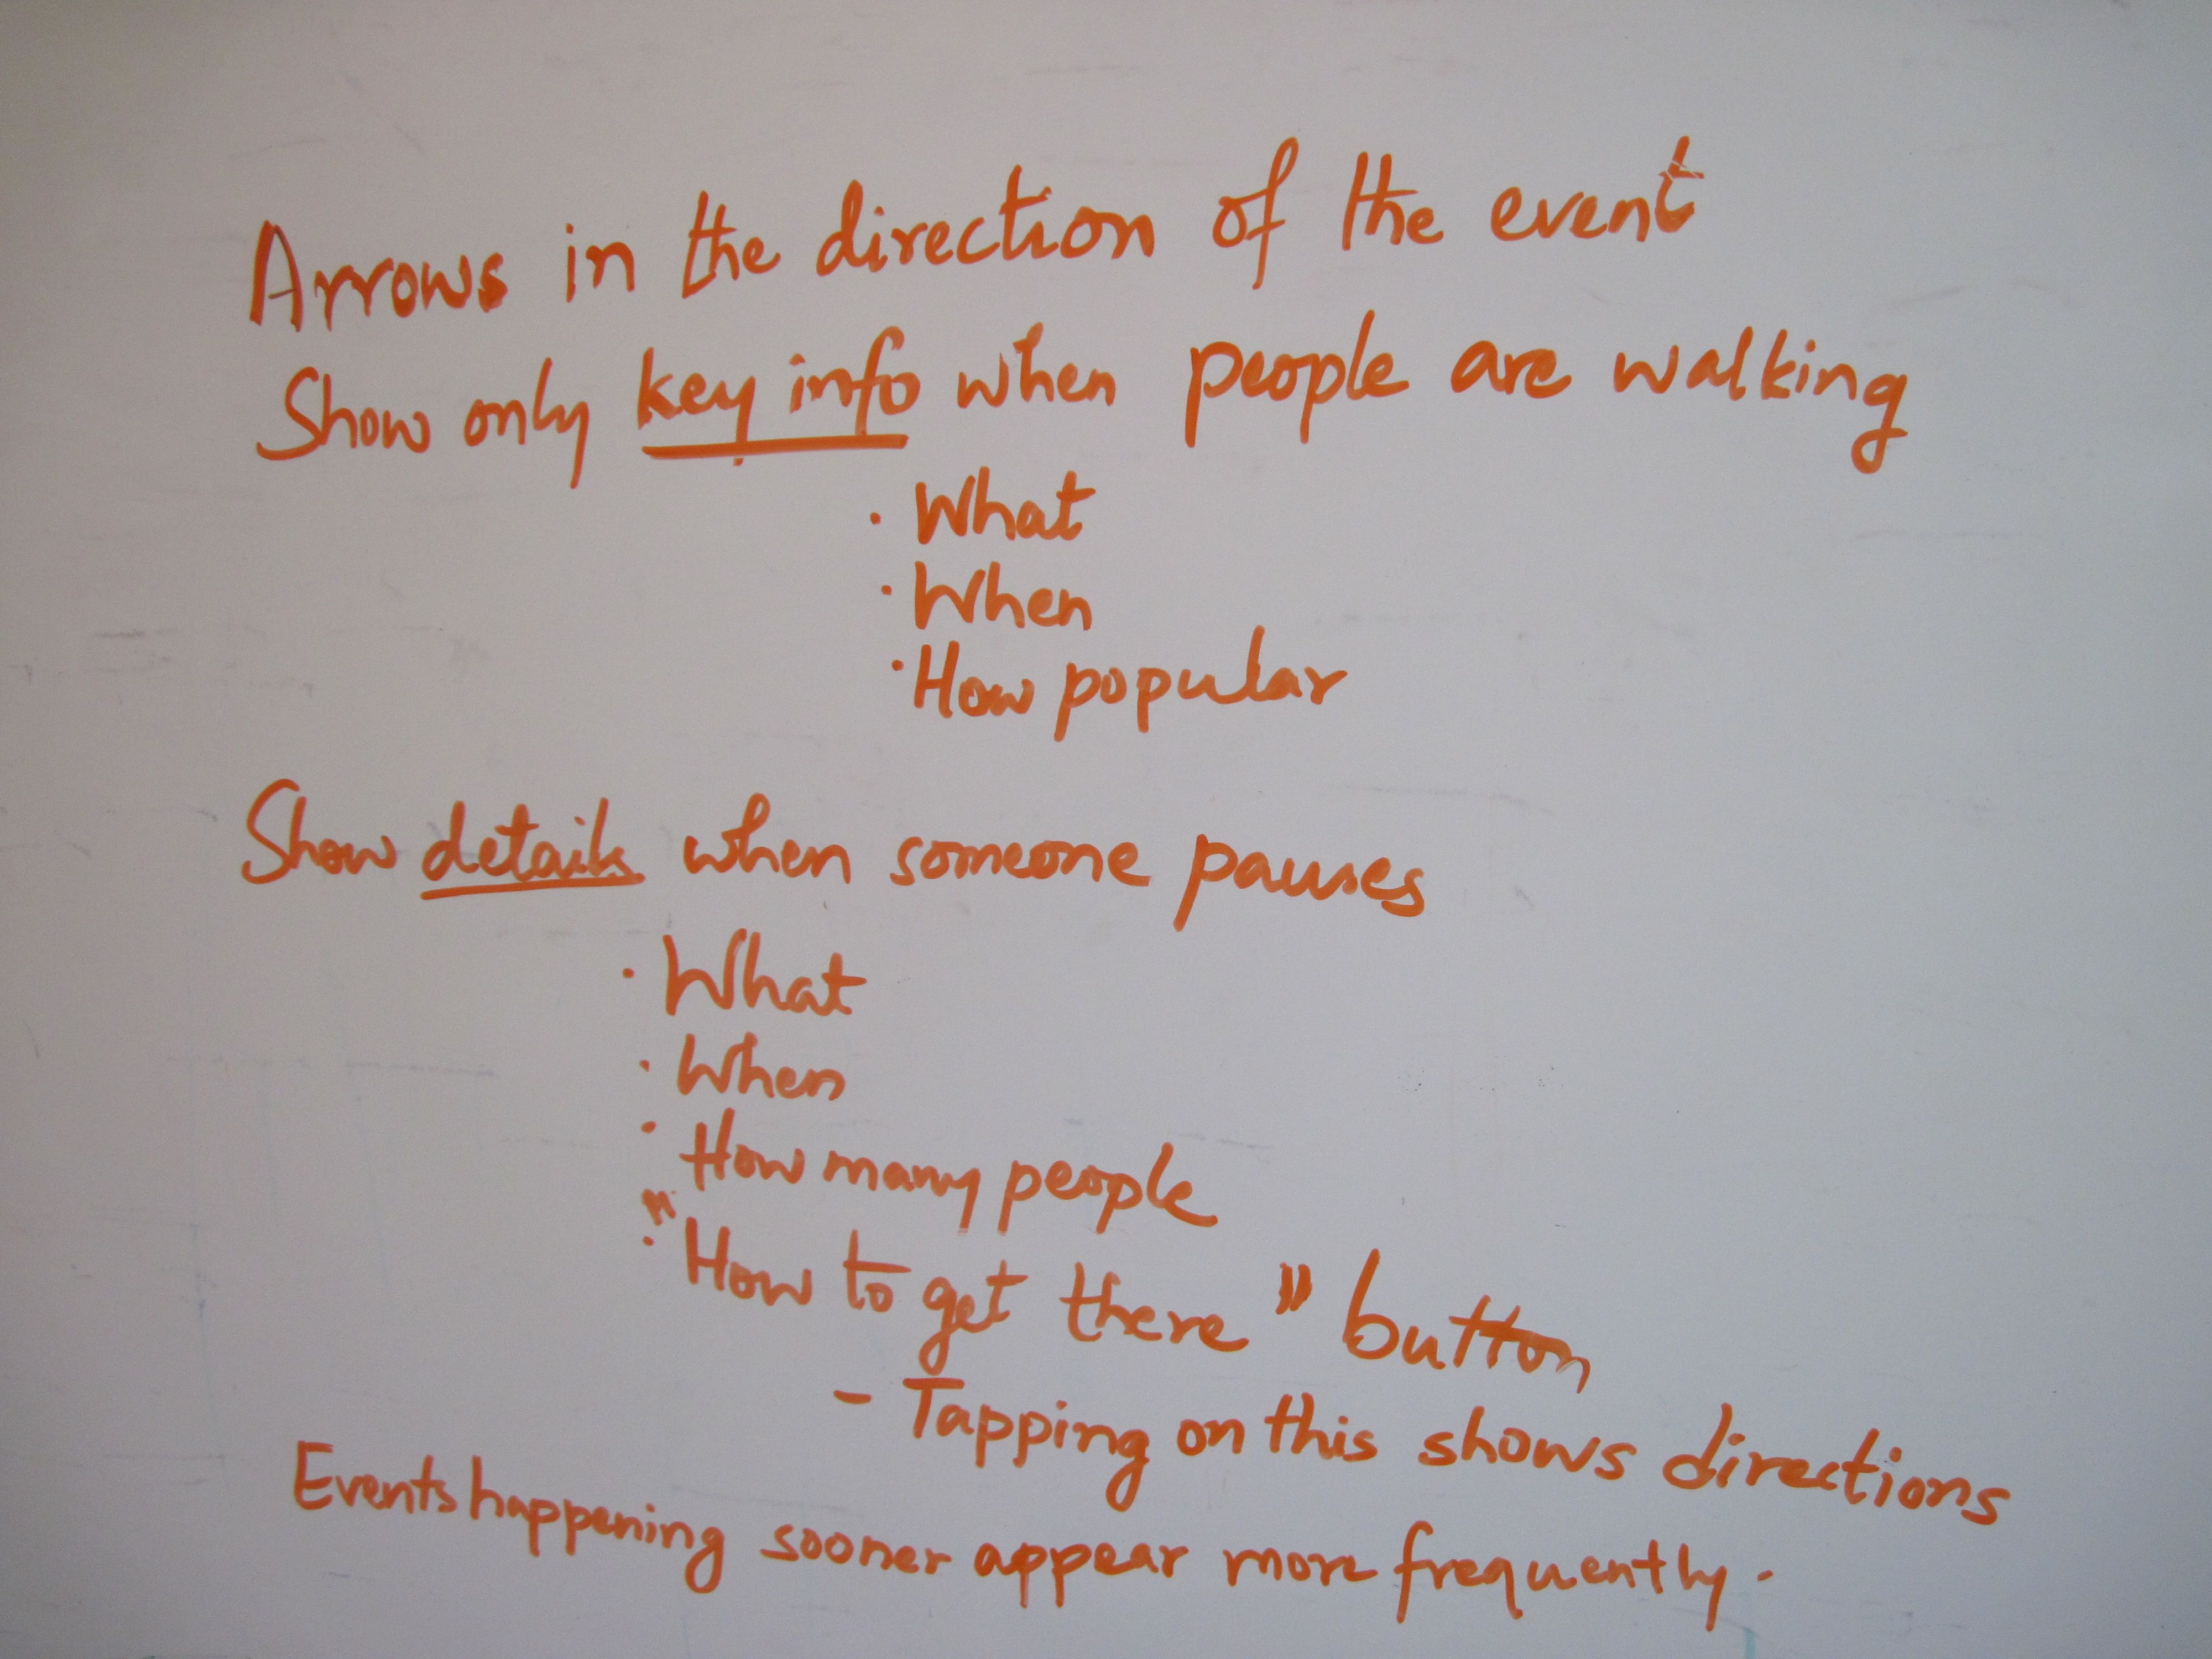 Arrows in the direction of the event
Show only key info when people are walking
· What
· When
· How popular
Show details when someone pauses
· What
· When
· How many people
· "How to get there" button
- Tapping on this shows directions
Events happening sooner appear more frequently.